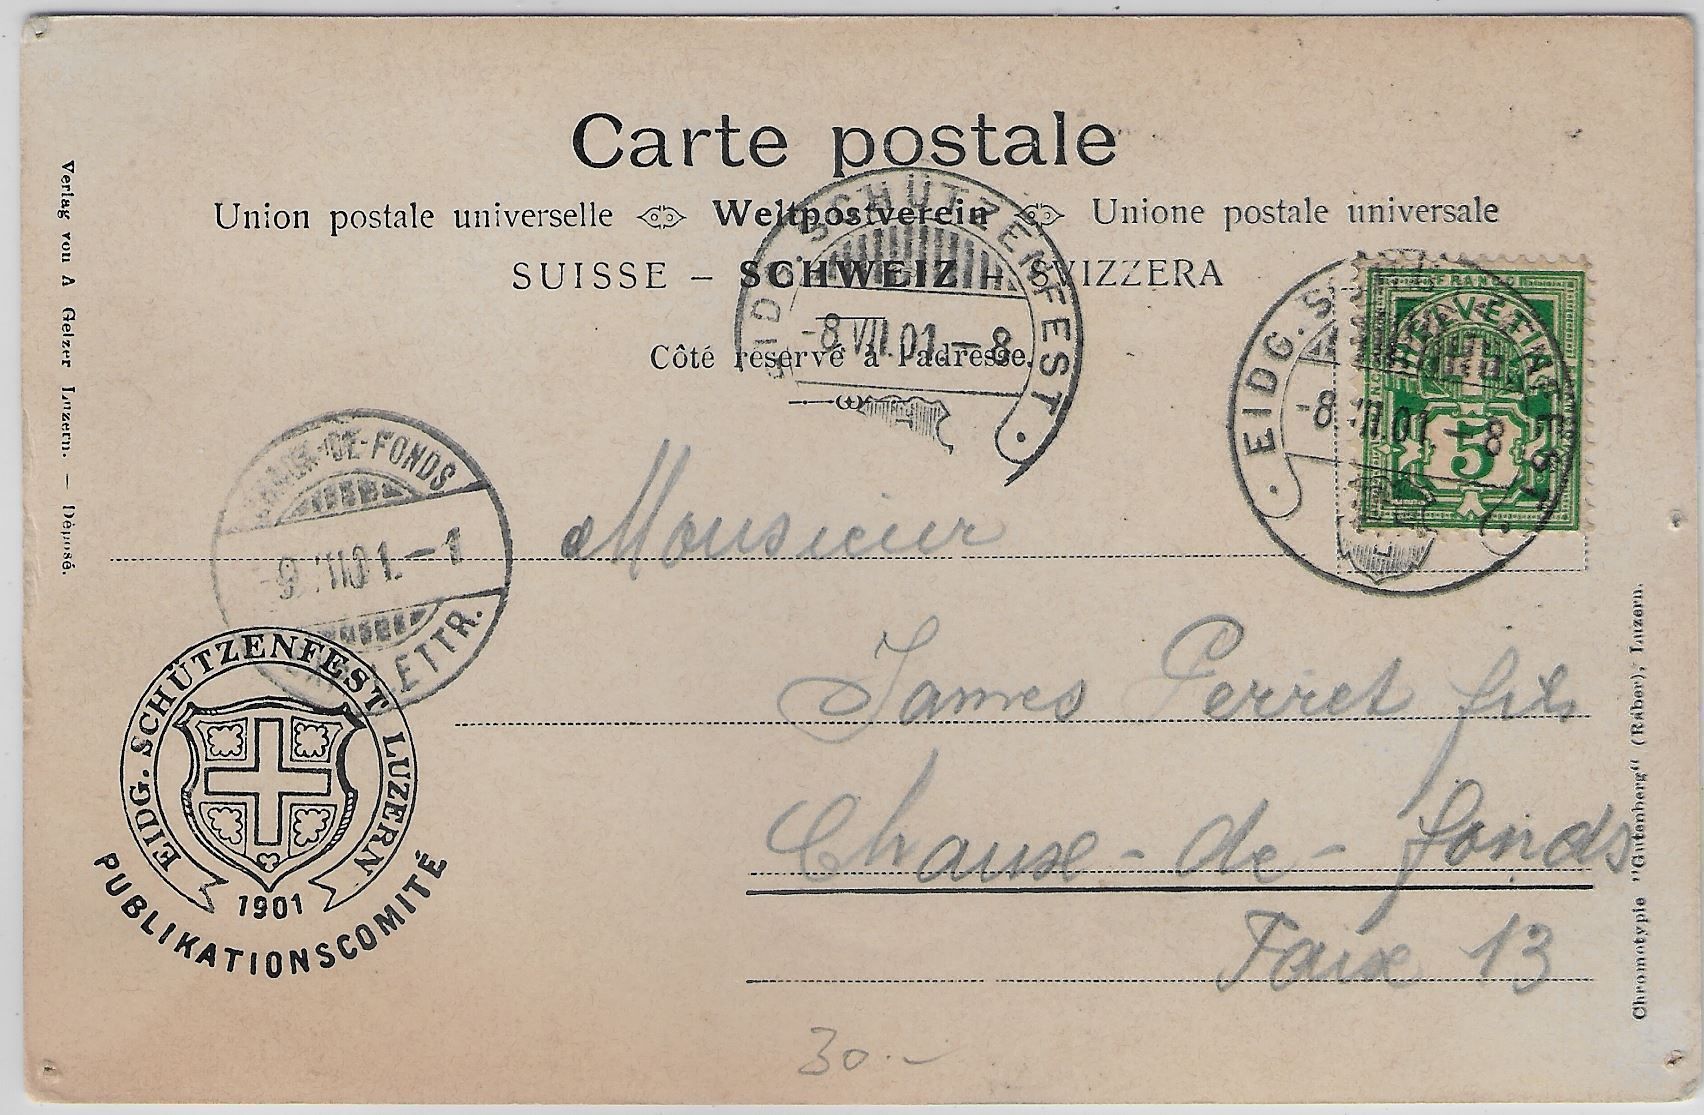 Carte postale
Union postale universelle Weltpostverein Unione postale universale
SUISSE – SCHWEIZ – SVIZZERA
Côté réservé à l'adresse.
EIDG. SCHÜTZENFEST
-8.VII.01.-8
EIDG. S
FEST
-8.VII.01.-8
FRANCO
HELVETIA
5
Verlag von A Gelzer Luzern. — Déposé.
-DE-FONDS
-9.VII.01.-1
LETTR.
Monsieur
James Perret fils
Chaux-de-fonds
Paix 13
EIDG. SCHÜTZENFEST LUZERN
1901
PUBLIKATIONSCOMITÉ
Chromotypie "Gutenberg" (Räber), Luzern.
30.-